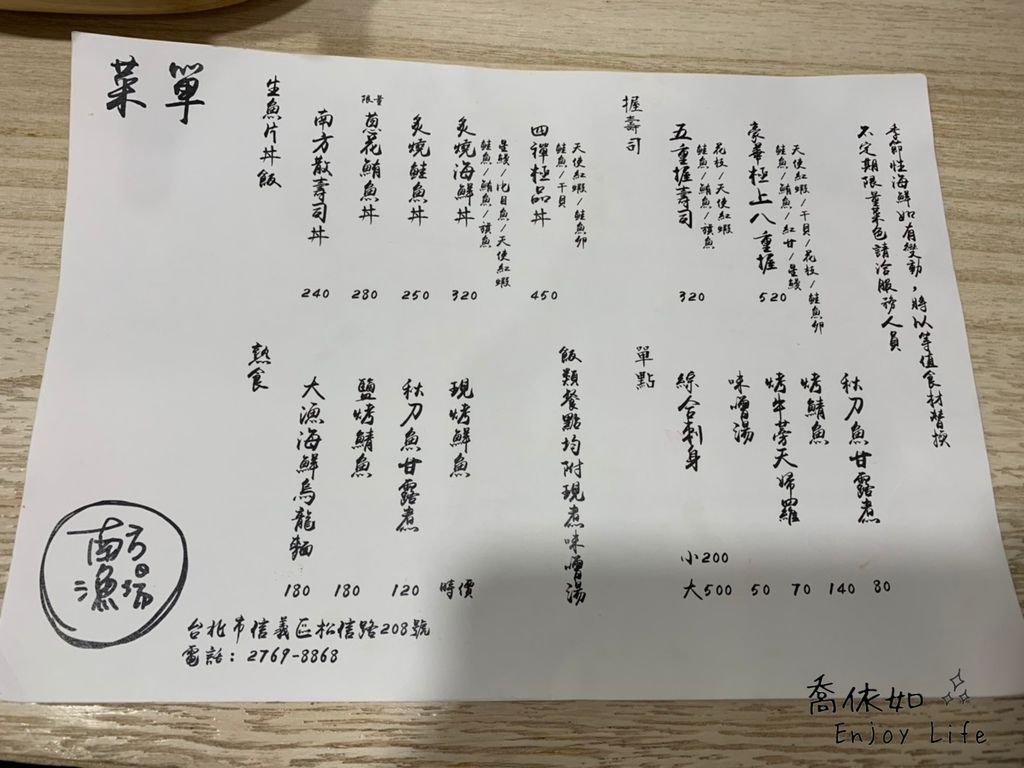 菜單
季節性海鮮如有變動，將以等值食材替換
不定期限量菜色請洽服務人員
握壽司
豪華極上八重握 520
天使紅蝦/干貝/花枝/鮭魚卵
鮭魚/鮪魚/紅甘/星鰻
五重握壽司 320
花枝/天使紅蝦
鮭魚/鮪魚/旗魚
生魚片丼飯
四禪極品丼 450
天使紅蝦/鮭魚卵
鮭魚/干貝
炙燒海鮮丼 320
星鰻/比目魚/天使紅蝦
鮭魚/鮪魚/旗魚
炙燒鮭魚丼 250
限量 蔥花鮪魚丼 280
南方散壽司丼 240
單點
秋刀魚甘露煮 80
烤鯖魚 140
烤牛蒡天婦羅 70
味噌湯 50
綜合刺身 小200
大500
飯類餐點均附現煮味噌湯
熟食
現烤鮮魚 時價
秋刀魚甘露煮 120
鹽烤鯖魚 180
大漁海鮮烏龍麵 180
南方
漁場
台北市信義區松信路208號
電話：2769-8868
喬依如
Enjoy Life